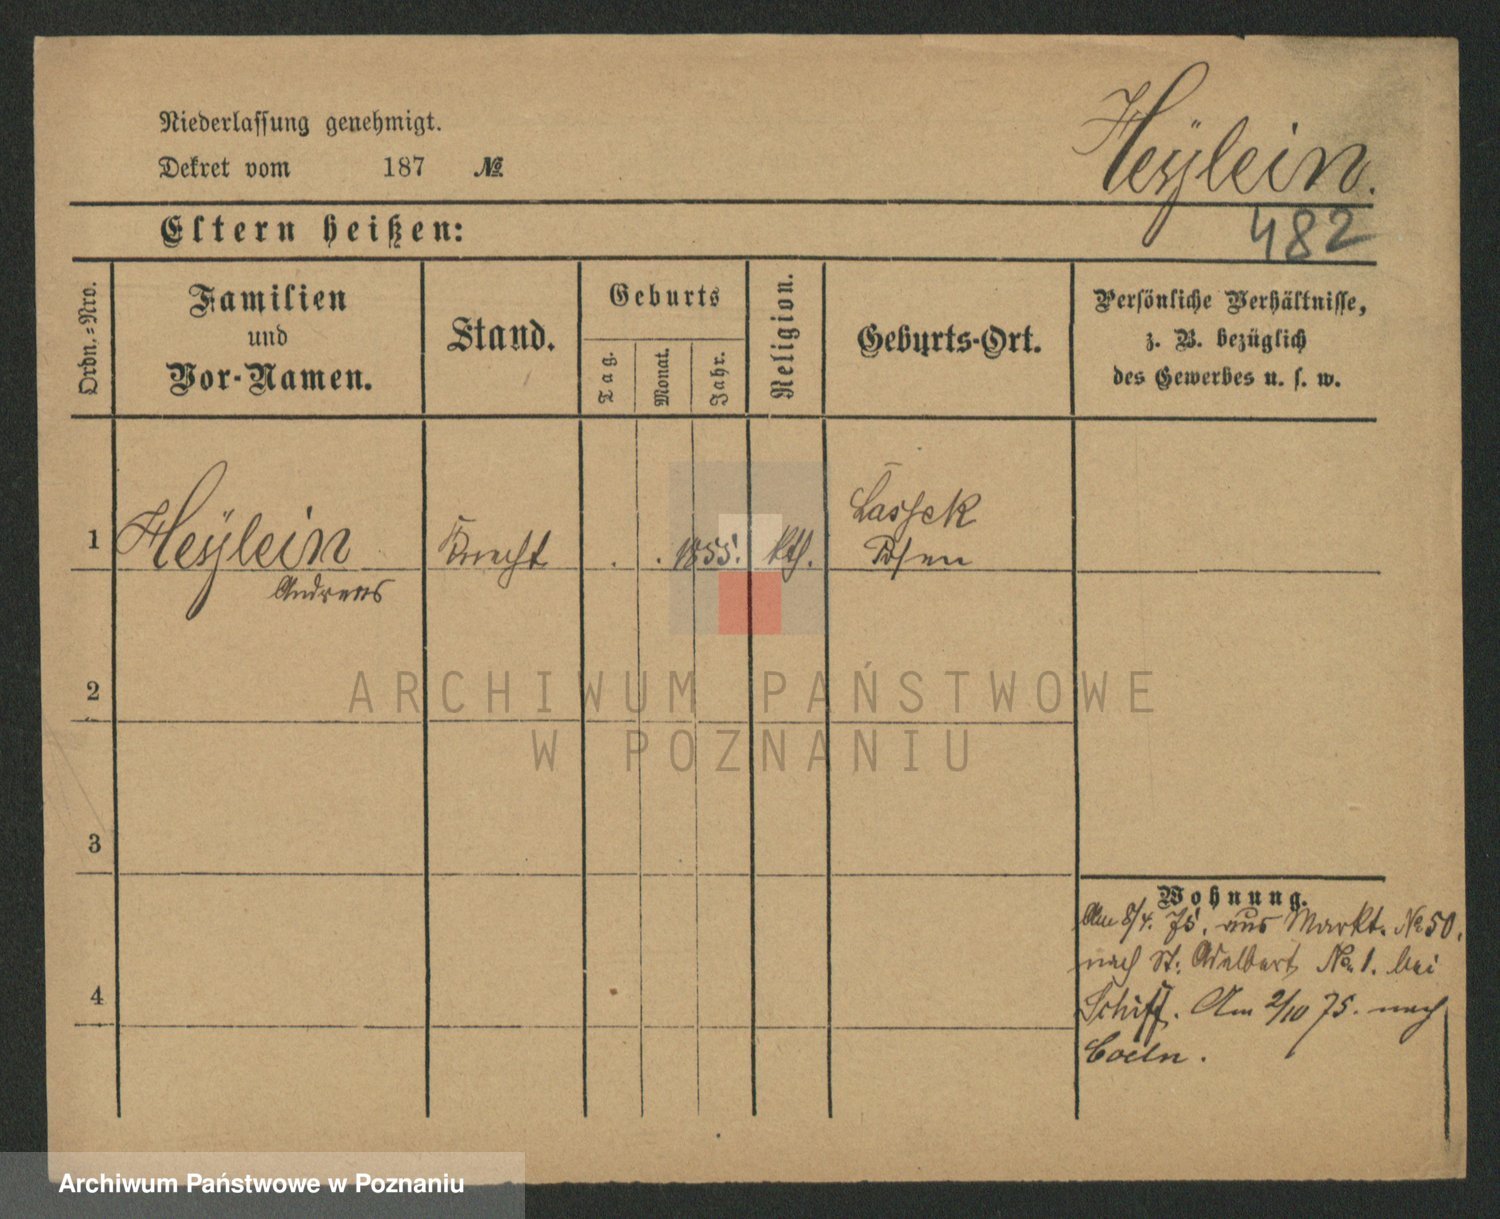 Heÿlein.
Niederlassung genehmigt.
Dekret vom 187 №
482
Eltern heißen:
Ordn.-Nro.
Familien
und
Vor-Namen.
Stand.
Geburts
Tag.
Monat.
Jahr.
Religion.
Geburts-Ort.
Persönliche Verhältnisse,
z. B. bezüglich
des Gewerbes u. s. w.
1 Heÿlein Knecht . . 1855. kth. Lassek
Posen
Andreas
2
3
4
Wohnung.
Am 8/4. 75. aus Markt. № 50.
nach St. Adalbert No. 1. bei
Schiff. Am 2/10 75. nach
Coeln.
ARCHIWUM PAŃSTWOWE
W POZNANIU
Archiwum Państwowe w Poznaniu